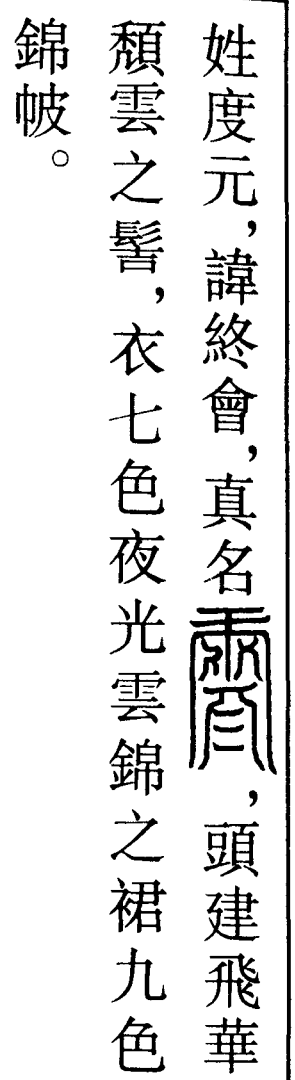 姓度元，諱終會，真名，頭建飛華
頹雲之髻，衣七色夜光雲錦之裙九色
錦帔。